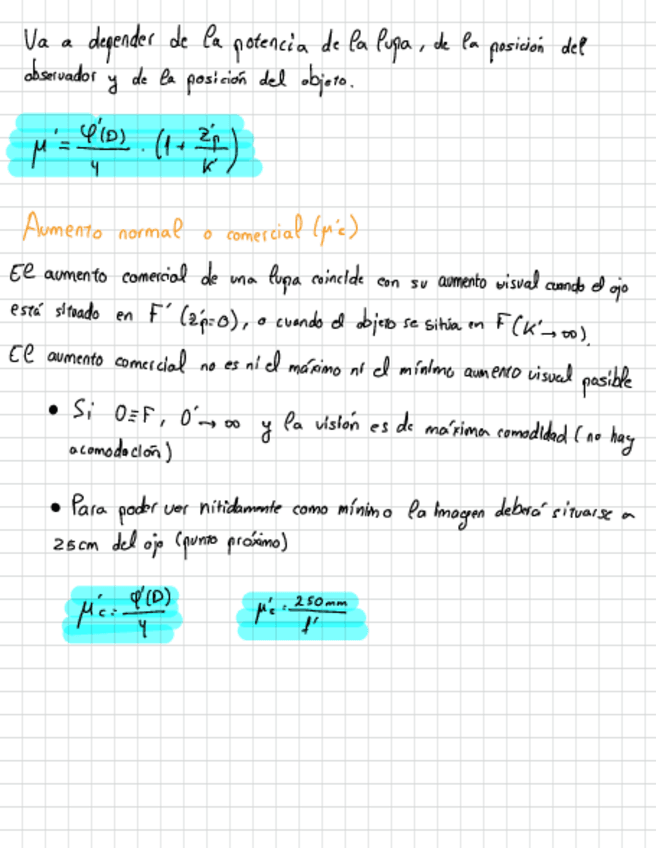 Va a depender de la potencia de la lupa, de la posición del
observador y de la posición del objeto.
μ' = φ'(D)/4 · (1 + z'p/K')
Aumento normal o comercial (μ'c)
El aumento comercial de una lupa coincide con su aumento visual cuando el ojo
está situado en F' (z'p=0), o cuando el objeto se sitúa en F (K'→∞).
El aumento comercial no es ni el máximo ni el mínimo aumento visual posible
• Si O≡F, O'→∞ y la visión es de máxima comodidad (no hay
acomodación)
• Para poder ver nítidamente como mínimo la imagen deberá situarse a
25cm del ojo (punto próximo)
μ'c = φ'(D)/4 μ'c = 250mm/f'